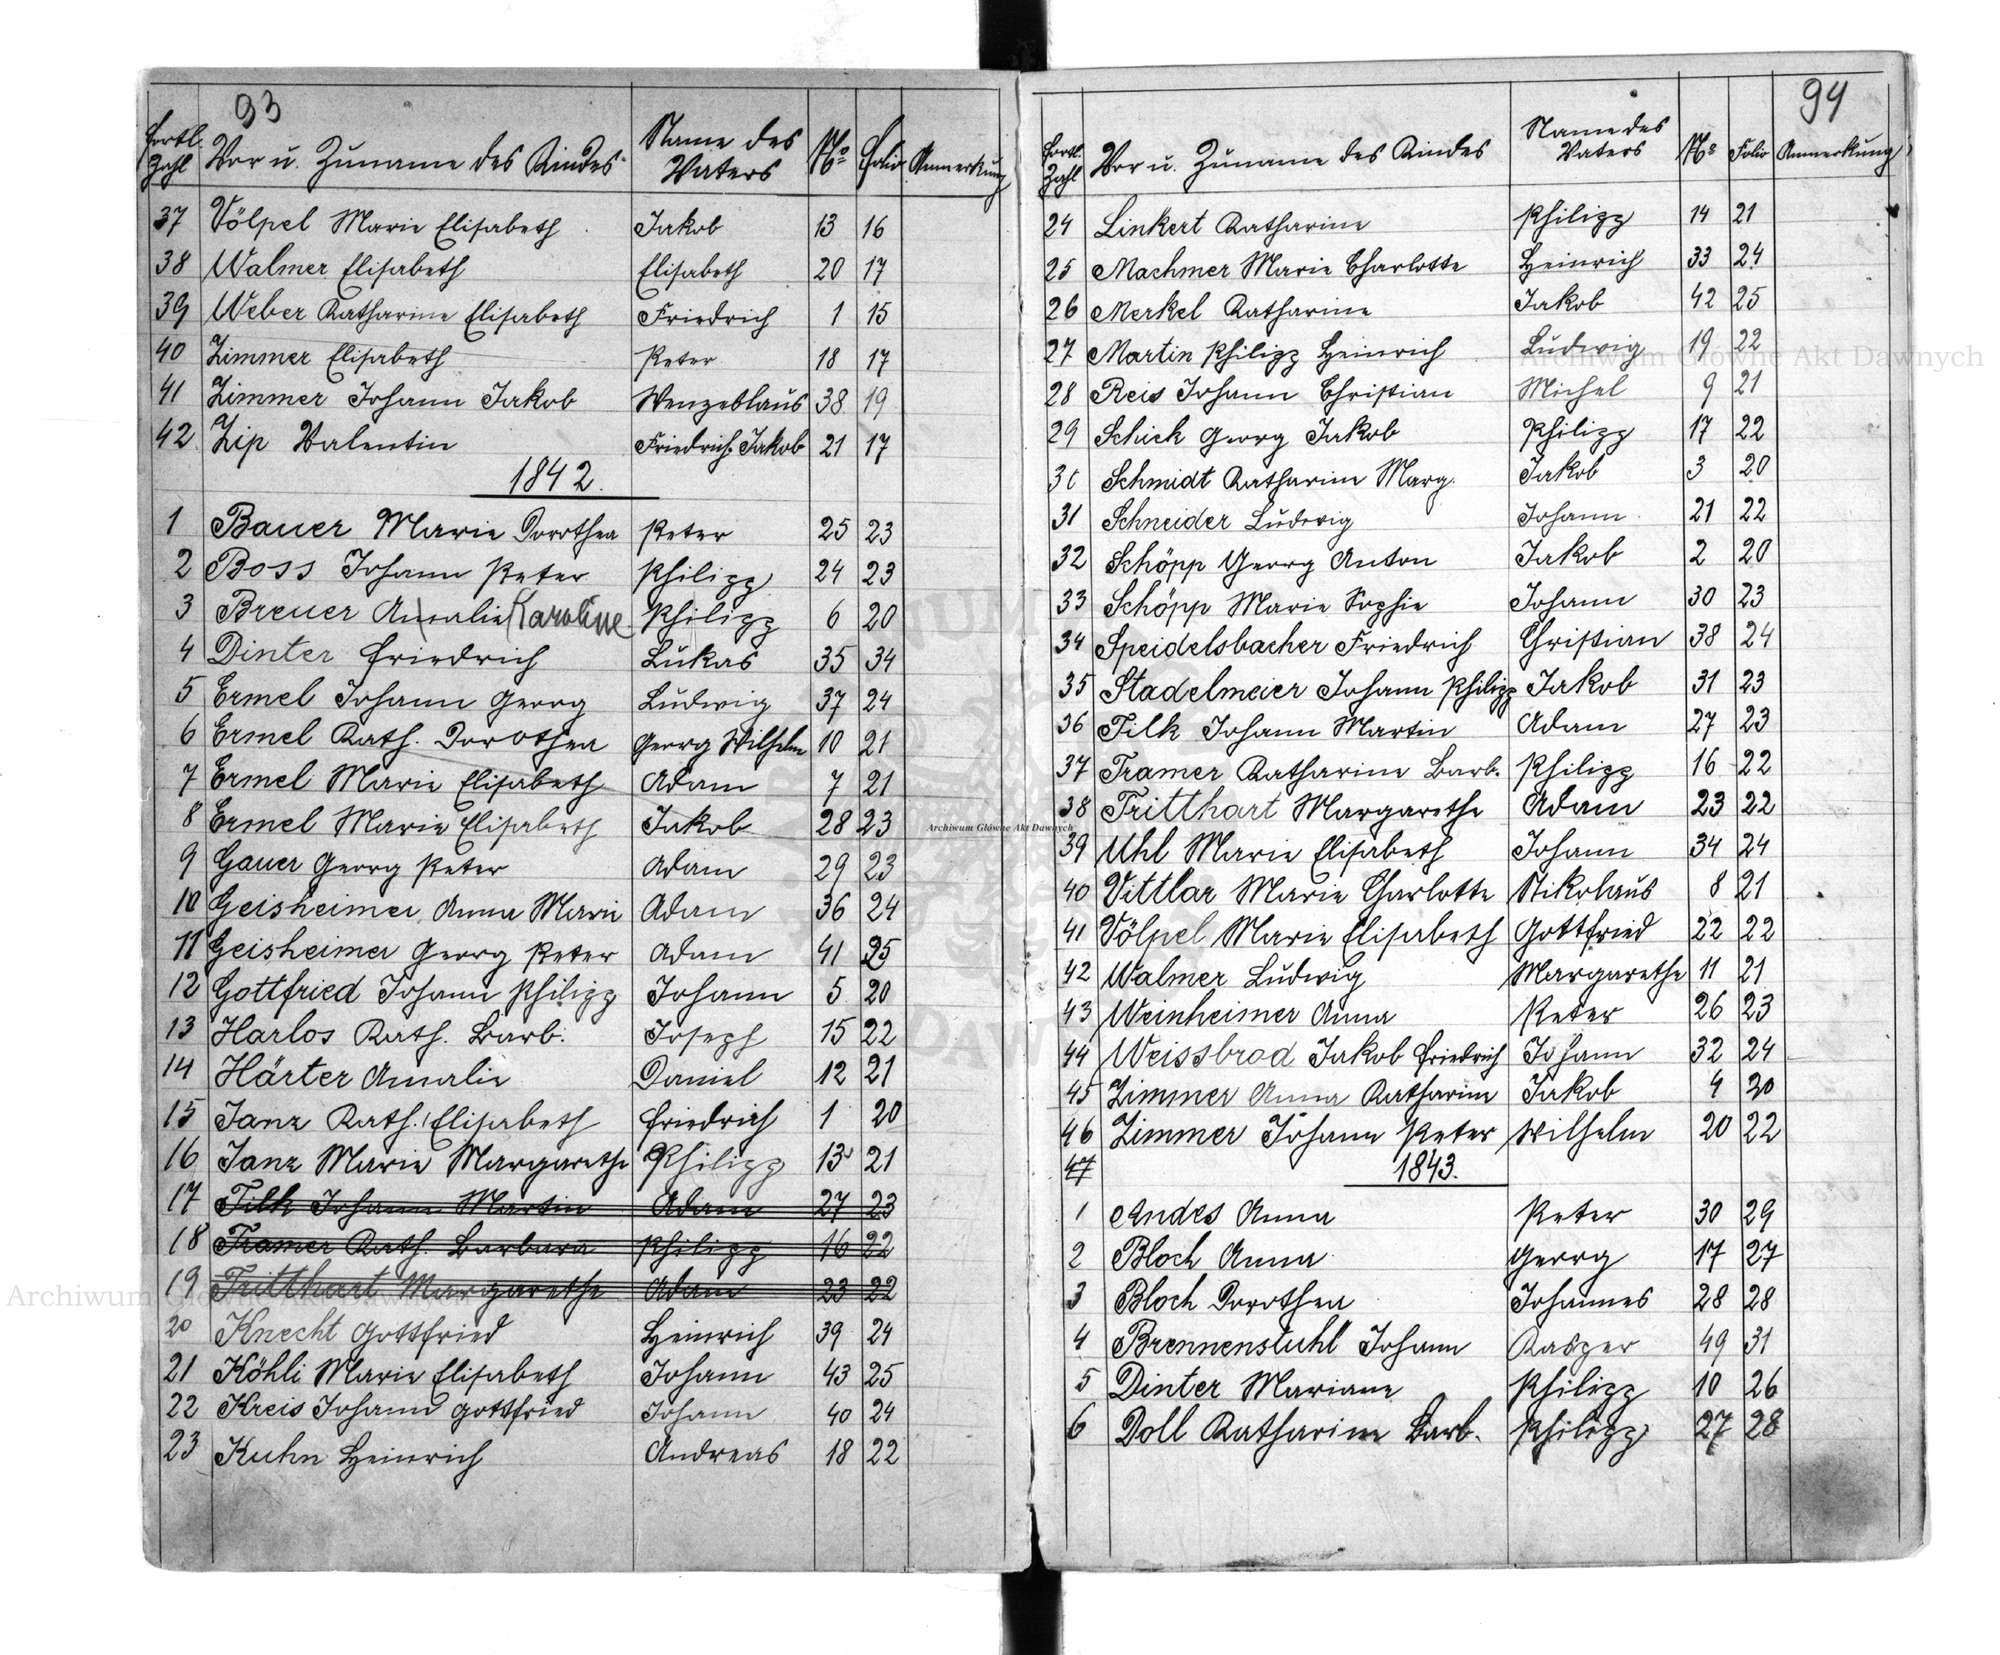 93
Fortl. Zahl Vor u. Zuname des Kindes Name des Vaters No Folio Anmerkung
37 Völpel Marie Elisabeth Jakob 13 16
38 Walmer Elisabeth Elisabeth 20 17
39 Weber Katharine Elisabeth Friedrich 1 15
40 Zimmer Elisabeth Peter 18 17
41 Zimmer Johann Jakob Wenzeslaus 38 19
42 Zip Valentin Friedrich Jakob 21 17
1842.
1 Bauer Marie Dorothea Peter 25 23
2 Boss Johann Peter Philipp 24 23
3 Breuer Amalie Karoline Philipp 6 20
4 Dinter Friedrich Lukas 35 34
5 Ermel Johann Georg Ludwig 37 24
6 Ermel Kath. Dorothea Georg Wilhelm 10 21
7 Ermel Marie Elisabeth Adam 7 21
8 Ermel Marie Elisabeth Jakob 28 23
9 Gauer Georg Peter Adam 29 23
10 Geisheimer Anna Marie Adam 36 24
11 Geisheimer Georg Peter Adam 41 25
12 Gottfried Johann Philipp Johann 5 20
13 Harlos Kath. Barb. Joseph 15 22
14 Härter Amalie Daniel 12 21
15 Janz Kath. Elisabeth Friedrich 1 20
16 Janz Marie Margarethe Philipp 13 21
17 Tilk Johann Martin Adam 27 23
18 Tramer Kath. Barbara Philipp 16 22
19 Tritthart Margarethe Adam 23 22
20 Knecht Gottfried Heinrich 39 24
21 Köhli Marie Elisabeth Johann 43 25
22 Kreis Johann Gottfried Johann 40 24
23 Kuhn Heinrich Andreas 18 22
94
Fortl. Zahl Vor u. Zuname des Kindes Name des Vaters No Folio Anmerkung
24 Linkert Katharine Philipp 14 21
25 Machmer Marie Charlotte Heinrich 33 24
26 Merkel Katharine Jakob 42 25
27 Martin Philipp Heinrich Ludwig 19 22
28 Reis Johann Christian Michel 9 21
29 Schick Georg Jakob Philipp 17 22
30 Schmidt Katharine Marg. Jakob 3 20
31 Schneider Ludwig Johann 21 22
32 Schöpp Georg Anton Jakob 2 20
33 Schöpp Marie Sophie Johann 30 23
34 Speidelsbacher Friedrich Christian 38 24
35 Stadelmeier Johann Philipp Jakob 31 23
36 Tilk Johann Martin Adam 27 23
37 Tramer Katharine Barb. Philipp 16 22
38 Tritthart Margarethe Adam 23 22
39 Uhl Marie Elisabeth Johann 34 24
40 Vittlar Marie Charlotte Nikolaus 8 21
41 Völpel Marie Elisabeth Gottfried 22 22
42 Walmer Ludwig Margarethe 11 21
43 Weinheimer Anna Peter 26 23
44 Weissbrod Jakob Friedrich Johann 32 24
45 Zimmer Anna Katharine Jakob 4 20
46 Zimmer Johann Peter Wilhelm 20 22
47 1843.
1 Andes Anna Peter 30 29
2 Bloch Anna Georg 17 27
3 Bloch Dorothea Johannes 28 28
4 Brennenstuhl Johann Kasper 49 31
5 Dinter Mariane Philipp 10 26
6 Doll Katharine Barb. Philipp 27 28
Archiwum Główne Akt Dawnych
Archiwum Główne Akt Dawnych
Archiwum Główne Akt Dawnych